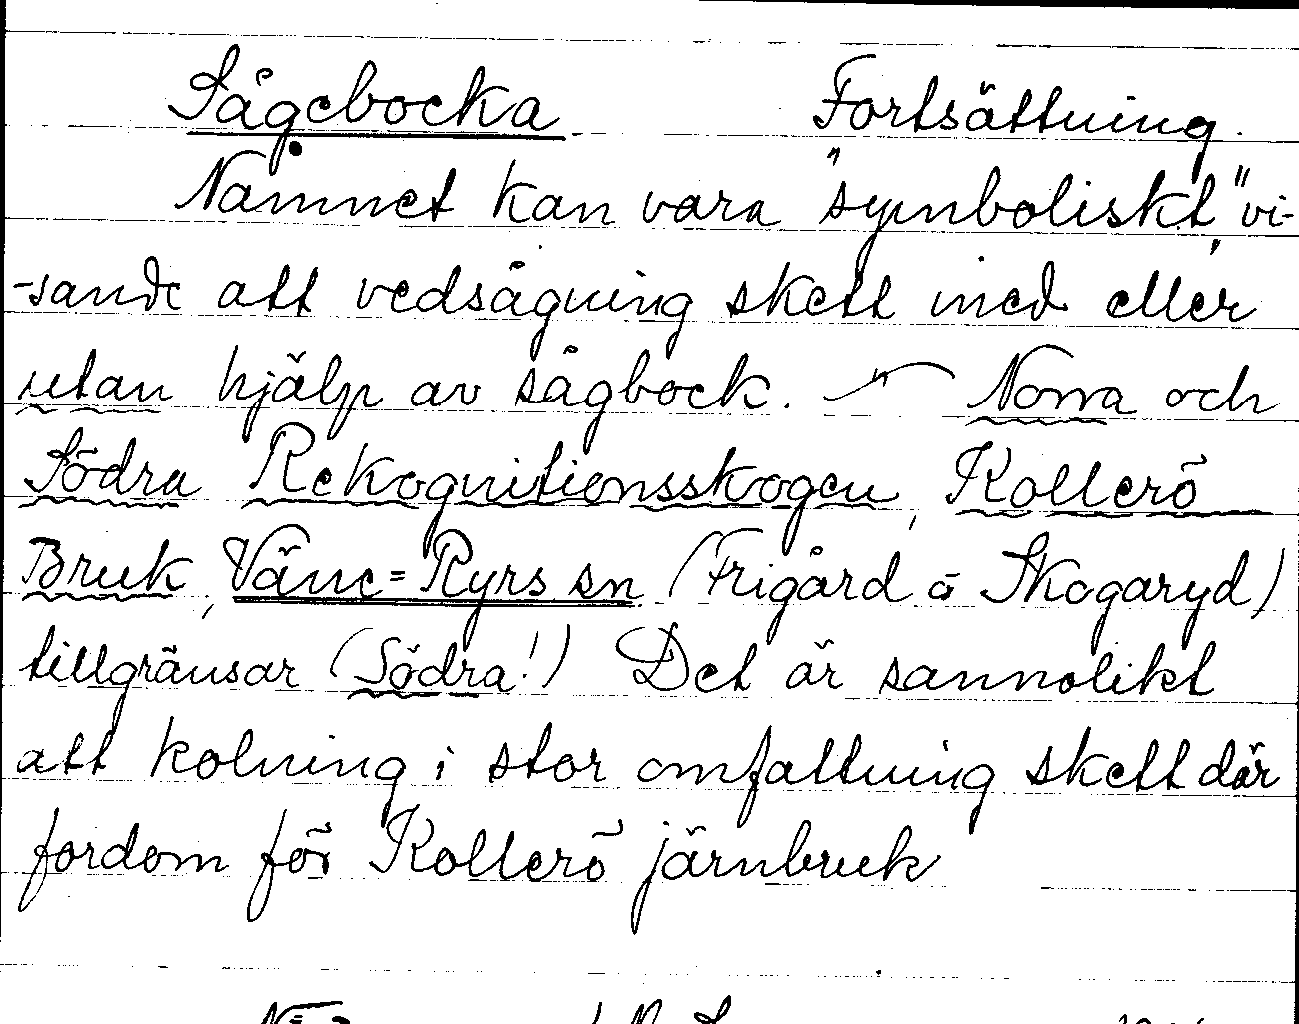 Sågebocka Fortsättning.
Namnet kan vara "symboliskt", vi-
-sande att vedsågning skett med eller
utan hjälp av sågbock. — " — Norra och
Södra Rekognitionsskogen, Kollerö
Bruk, Väne=Ryrs sn (Frigård å Skogaryd)
tillgränsar (Södra!) Det är sannolikt
att kolning i stor omfattning skett där
fordom för Kollerö järnbruk